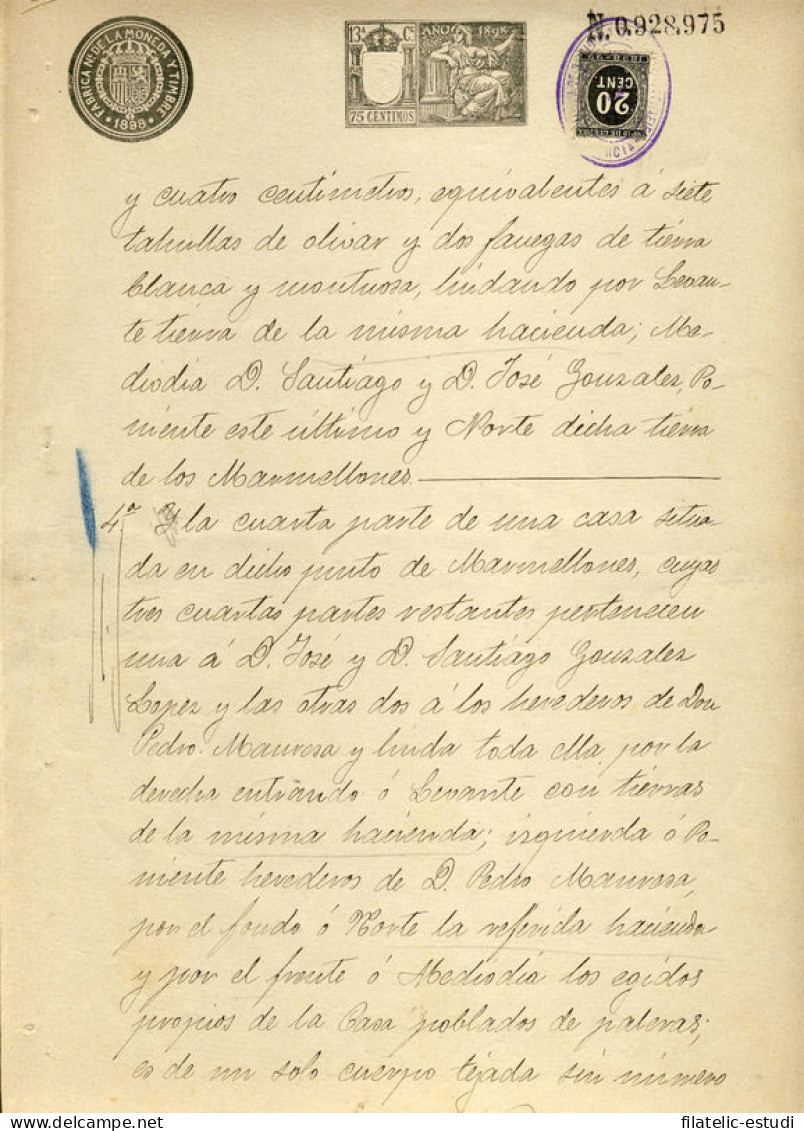 N. 0.928,975
FABRICA Nal DE LA MONEDA Y TIMBRE
· 1898 ·
13ª Cs
AÑO 1898
75 CENTIMOS
20
CENT
y cuatro centímetros, equivalentes á siete
tahullas de olivar y dos fanegas de tierra
blanca y montuosa, lindando por Levan-
te tierra de la misma hacienda; Me-
diodia D. Santiago y D. José Gonzalez, Po-
niente este último y Norte dicha tierra
de los Marmellones.
4ª Y la cuarta parte de una casa situa-
da en dicho punto de Marmellones, cuyas
tres cuartas partes restantes pertenecen
una á D. José y D. Santiago Gonzalez
Lopez y las otras dos á los herederos de Don
Pedro Manresa y linda toda ella por la
derecha entrando ó Levante con tierras
de la misma hacienda; izquierda ó Po-
niente herederos de D. Pedro Manresa,
por el fondo ó Norte la referida hacienda
y por el frente ó Mediodia los egidos
propios de la Casa poblados de paleras;
es de un solo cuerpo tejada sin número
filatelic-estudi